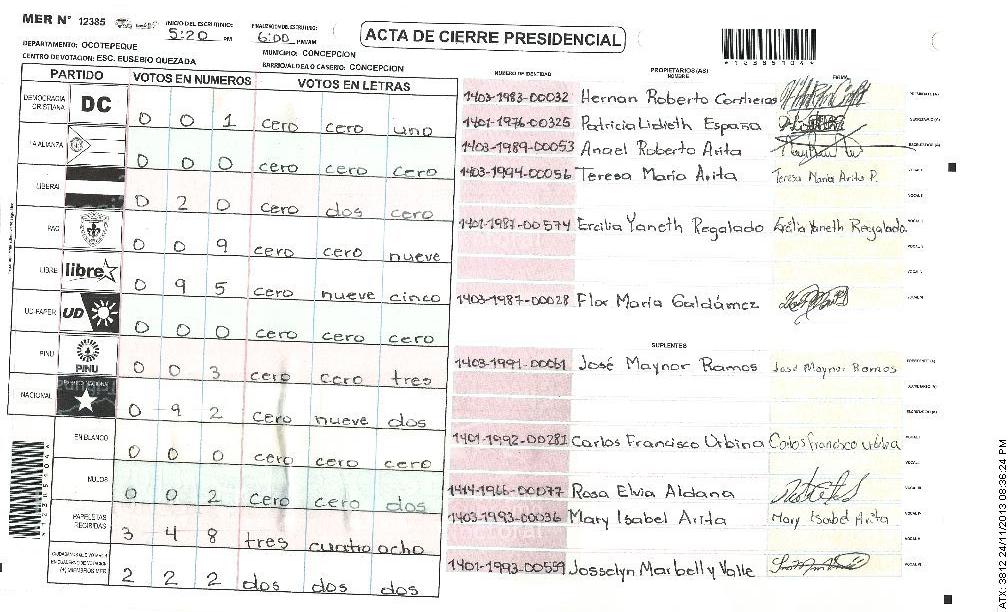 MER N° 12385 INICIO DEL ESCRUTINIO: 5:20 PM FINALIZACION DE ESCRUTINIO: 6:00 PM/AM ACTA DE CIERRE PRESIDENCIAL
DEPARTAMENTO: OCOTEPEQUE MUNICIPIO: CONCEPCION
CENTRO DE VOTACION: ESC. EUSEBIO QUEZADA BARRIO/ALDEA O CASERIO: CONCEPCION
PARTIDO VOTOS EN NUMEROS VOTOS EN LETRAS
DEMOCRACIA CRISTIANA DC 0 0 1 cero cero uno
LA ALIANZA 0 0 0 cero cero cero
LIBERAL 0 2 0 cero dos cero
PAC 0 0 9 cero cero nueve
LIBRE libre 0 9 5 cero nueve cinco
UD-FAPER UD 0 0 0 cero cero cero
PINU PINU 0 0 3 cero cero tres
NACIONAL 0 9 2 cero nueve dos
EN BLANCO 0 0 0 cero cero cero
NULOS 0 0 2 cero cero dos
PAPELETAS RECIBIDAS 3 4 8 tres cuatro ocho
2 2 2 dos dos dos
NUMERO DE IDENTIDAD PROPIETARIOS (AS) NOMBRE FIRMA
1403-1983-00032 Hernan Roberto Contreras
1401-1976-00325 Patricia Lidieth España
1403-1989-00053 Anael Roberto Arita
1403-1994-00056 Teresa María Arita Teresa María Arita P.
1401-1987-00574 Ercilia Yaneth Regalado Ercilia Yaneth Regalado
1403-1987-00028 Flor María Galdámez
SUPLENTES
1403-1991-00061 José Maynor Ramos José Maynor Ramos
1401-1992-00281 Carlos Francisco Urbina Carlos francisco urbina
1414-1966-00077 Rosa Elvia Aldana
1403-1993-00036 Mary Isabel Arita Mary Isabel Arita
1401-1993-00559 Josselyn Marbelly Valle
*12385104*
ATX: 3812 24/11/2013 08:36:24 PM